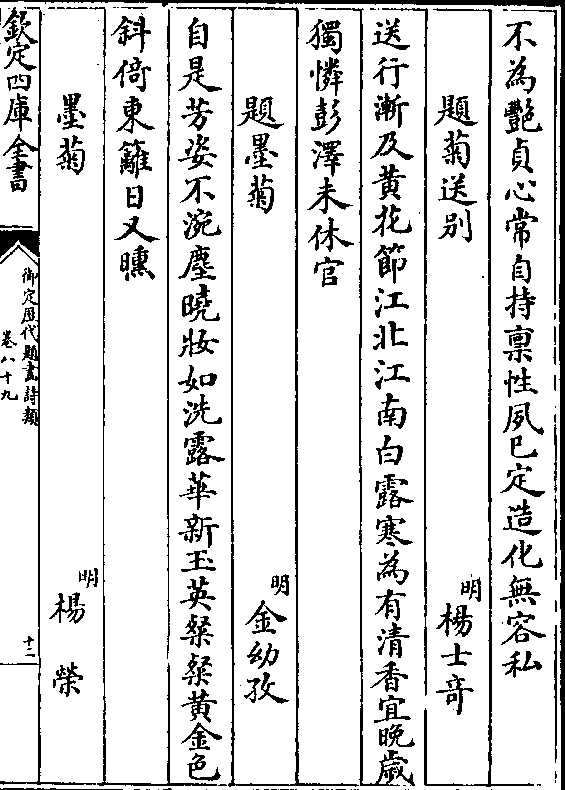 不為艷貞心常自持稟性夙已定造化無容私
題菊送别　明楊士竒
送行漸及黄花節江北江南白露寒為有清香宜晚歲
獨憐彭澤未休官
題墨菊　明金幼孜
自是芳姿不涴塵曉妝如洗露華新玉英粲粲黄金色
斜倚東籬日又曛
墨菊　明楊榮
欽定四庫全書
御定歴代題畫詩類
卷八十九
十二